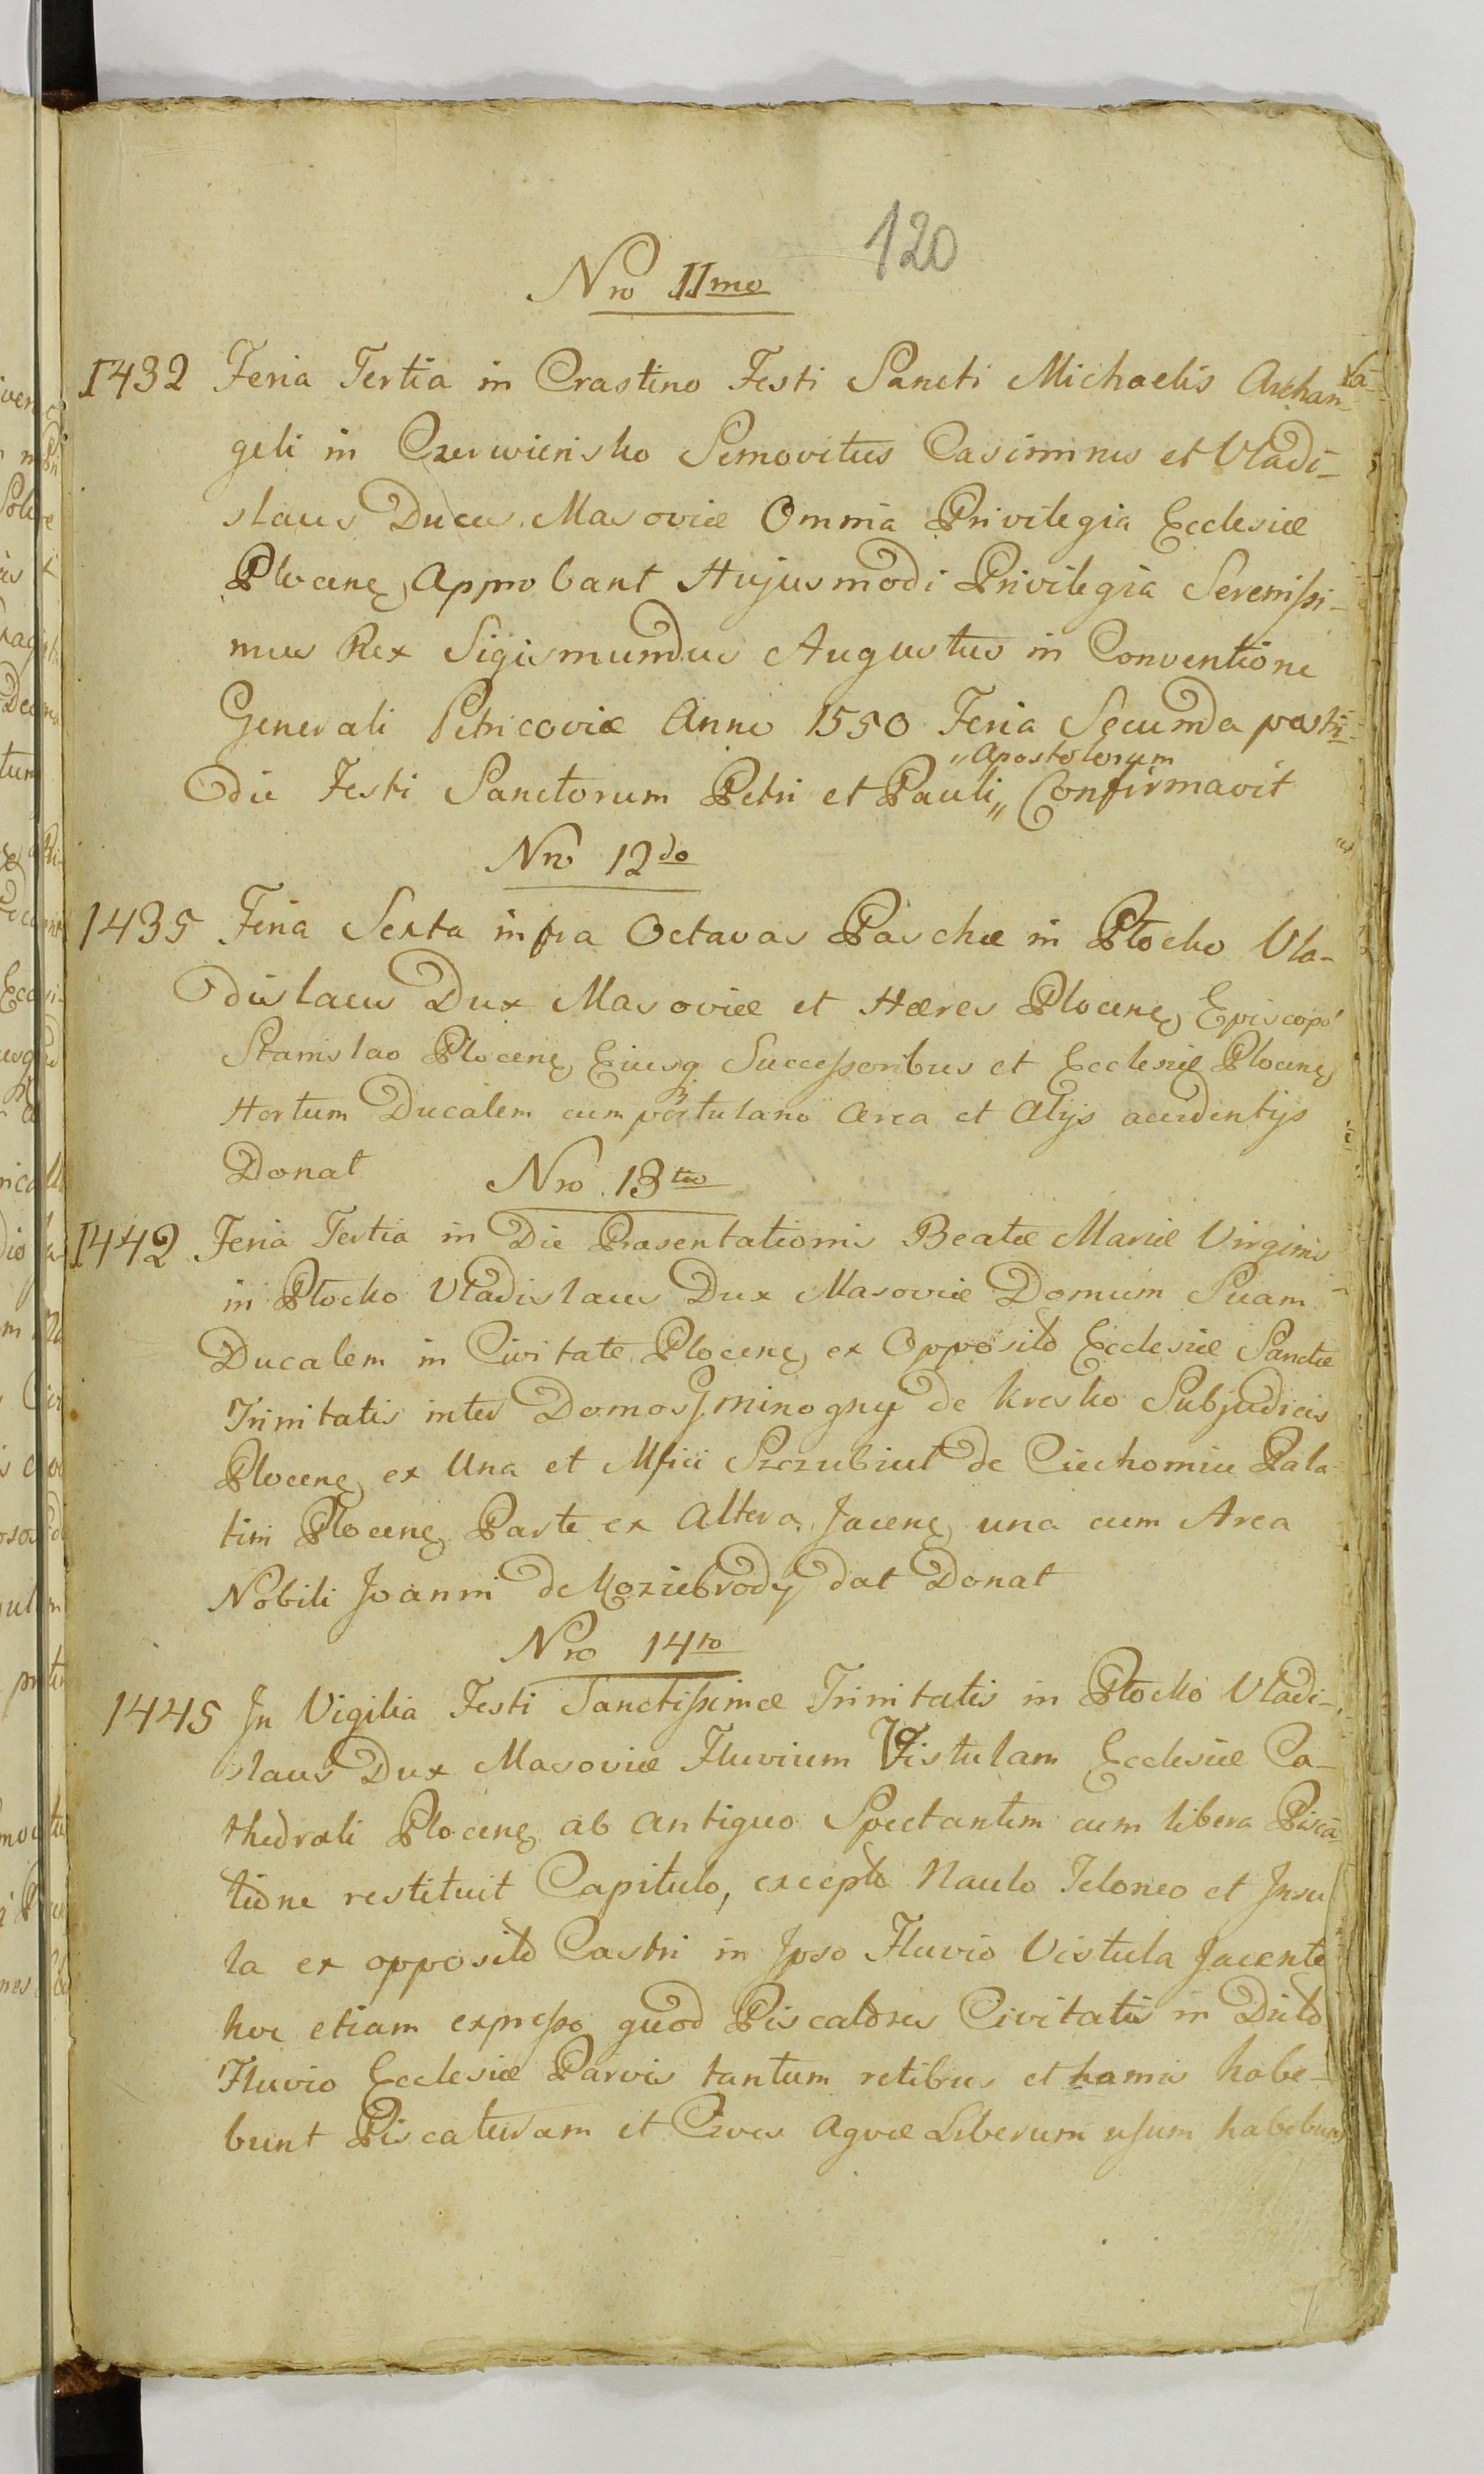 120
Nro 11mo
1432 Feria Tertia in Crastino Festi Sancti Michaelis Archan-
geli in Czerwiensko Semovitus Casimirus et Vladi-
slaus Duces Masoviæ Omnia Privilegia Ecclesiæ
Plocenę Approbant Hujusmodi Privilegia Serenissi-
mus Rex Sigismundus Augustus in Conventione
Generali Petricoviæ Anno 1550 Feria Secunda postri-
die Festi Sanctorum Petri et Pauli „Apostolorum„ Confirmavit
Nro 12do
1435 Feria Sexta infra Octavas Paschæ in Płocko Vla-
dislaus Dux Masoviæ et Hæres Plocenę Episcopo
Stanislao Plocenę Eiusq Successoribus et Ecclesiæ Plocenę
Hortum Ducalem cum portulano Area et Alijs accidentijs
Donat
Nro 13tio
1442 Feria Tertia in Die Præsentationis Beatæ Mariæ Virginis
in Płocko Vladislaus Dux Masoviæ Domum Suam
Ducalem in Civitate Plocenę ex Opposito Ecclesiæ Sanctæ
Trinitatis inter Domos G. Minogny de Kresko Subjudicis
Plocenę ex Una et Mfici Szczubiut de Ciechomice Pala-
tini Plocenę Parte ex Altera Jacenę una cum Area
Nobili Joanni de Koziebrody dat Donat
Nro 14to
1445 In Vigilia Festi Sanctissimæ Trinitatis in Płocko Vladi-
slaus Dux Masoviæ Fluvium Vistulam Ecclesiæ Ca-
thedrali Plocenę ab Antiquo Spectantem cum libera Pisca-
tione restituit Capitulo, excepto Naulo Teloneo et Insu
la ex opposito Castri in Ipso Fluvio Vistula Jacente
hoc etiam expresso quod Piscatores Civitatis in Dicto
Fluvio Ecclesiæ Parvis tantum retibus et hamis habe-
bunt Piscaturam et Cives Aquæ Liberum usum habebunt